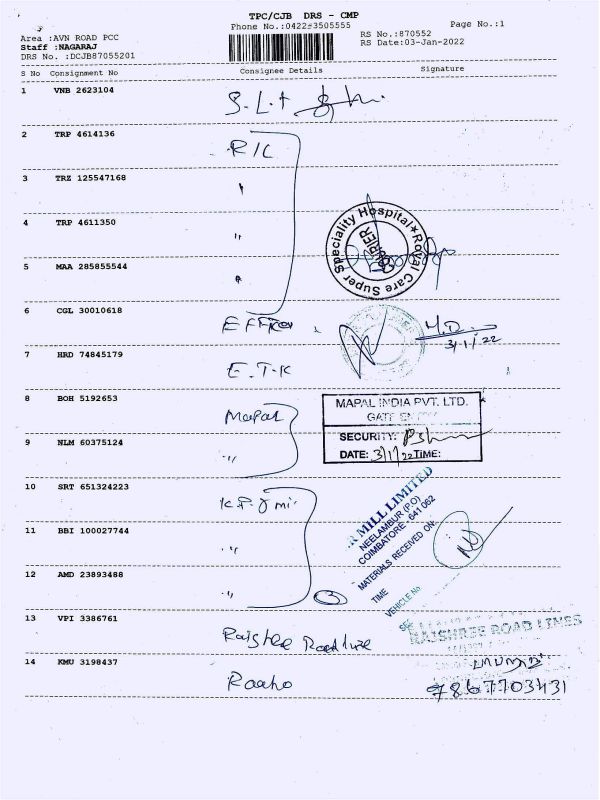 TPC/CJB DRS - CMP
Phone No.:0422-3505555
Page No.:1
Area :AVN ROAD PCC
Staff :NAGARAJ
DRS No. :DCJB87055201
RS No.:870552
RS Date:03-Jan-2022
S No Consignment No Consignee Details Signature
1 VNB 2623104
2 TRP 4614136 R/C
3 TRZ 125547168 "
4 TRP 4611350 "
Royal Care Super Speciality Hospital
5 MAA 285855544 "
6 CGL 30010618
3/1/22
7 HRD 74845179 E.T.K
8 BOH 5192653 Mapal
MAPAL INDIA PVT. LTD.
GATE ENTRY
SECURITY:
DATE: 3/1/22 TIME:
9 NLM 60375124 "
10 SRT 651324223
MILL LIMITED
NEELAMBUR (P.O)
COIMBATORE - 641 062
MATERIALS RECEIVED ON:
TIME
VEHICLE No
11 BBI 100027744 "
12 AMD 23893488 "
13 VPI 3386761
RAJSHREE ROAD LINES
14 KMU 3198437 Raaho
9867703431